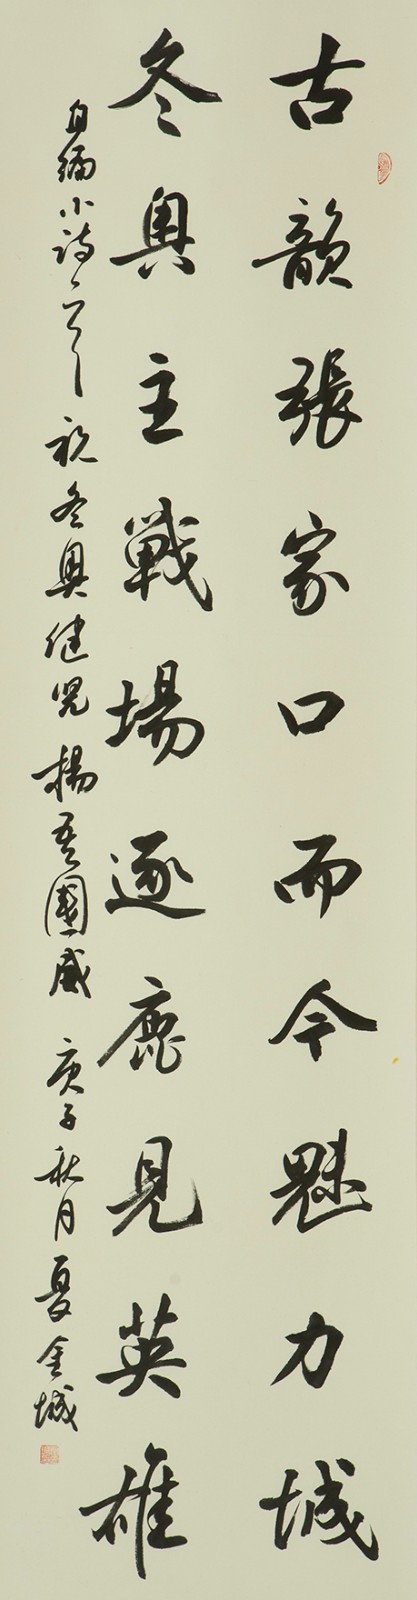 古韻張家口而今魅力城
冬奥主戰場逐鹿見英雄
自编小詩一首祝冬奥健児楊吾國威庚子秋月夏金城